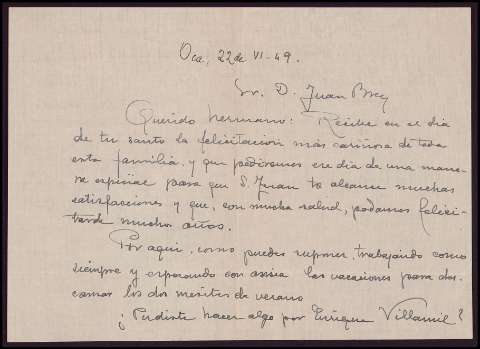 Oca, 22 de VI-49.
Sr. D. Juan Brey
Querido hermano: Recibe en el dia
de tu santo la felicitacion más cariñosa de toda
esta familia, y que pediremos ese dia de una mane-
ra especial para que S. Juan te alcance muchas
satisfacciones y que, con mucha salud, podamos felici-
tarte muchos años.
Por aqui, como puedes suponer, trabajando como
siempre y esperando con ansia las vacaciones para des-
cansar los dos mesitos de verano
¿Pudiste hacer algo por Enrique Villamil?